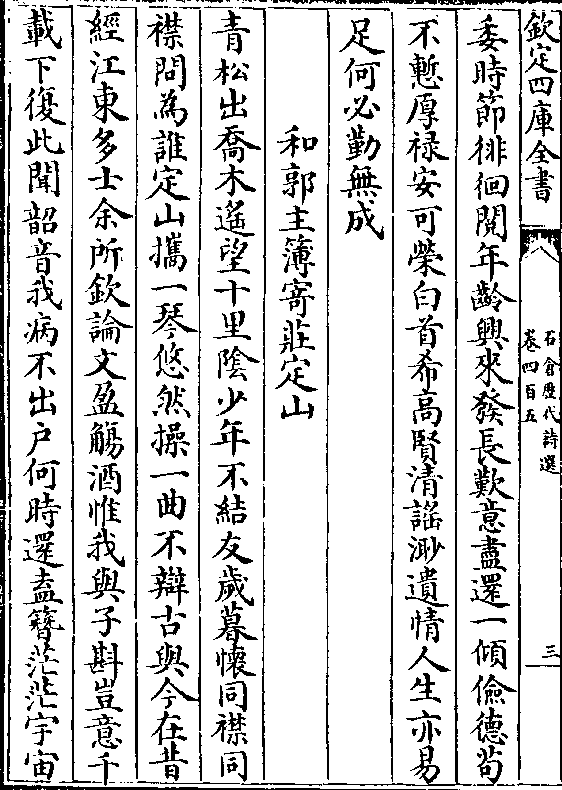 欽定四庫全書
石倉歷代詩選
卷四百五
三
委時節徘徊閱年齡興來發長歎意盡還一傾儉德苟
不慙厚祿安可榮白首希高賢清謡渺遺情人生亦易
足何必勤無成
和郭主簿寄莊定山
青松出喬木遙望十里陰少年不結友歲暮懷同襟同
襟問為誰定山攜一琴悠然操一曲不辯古與今在昔
經江東多士余所欽論文盈觴酒惟我與子斟豈意千
載下復此聞韶音我病不出户何時還盍簪茫茫宇宙